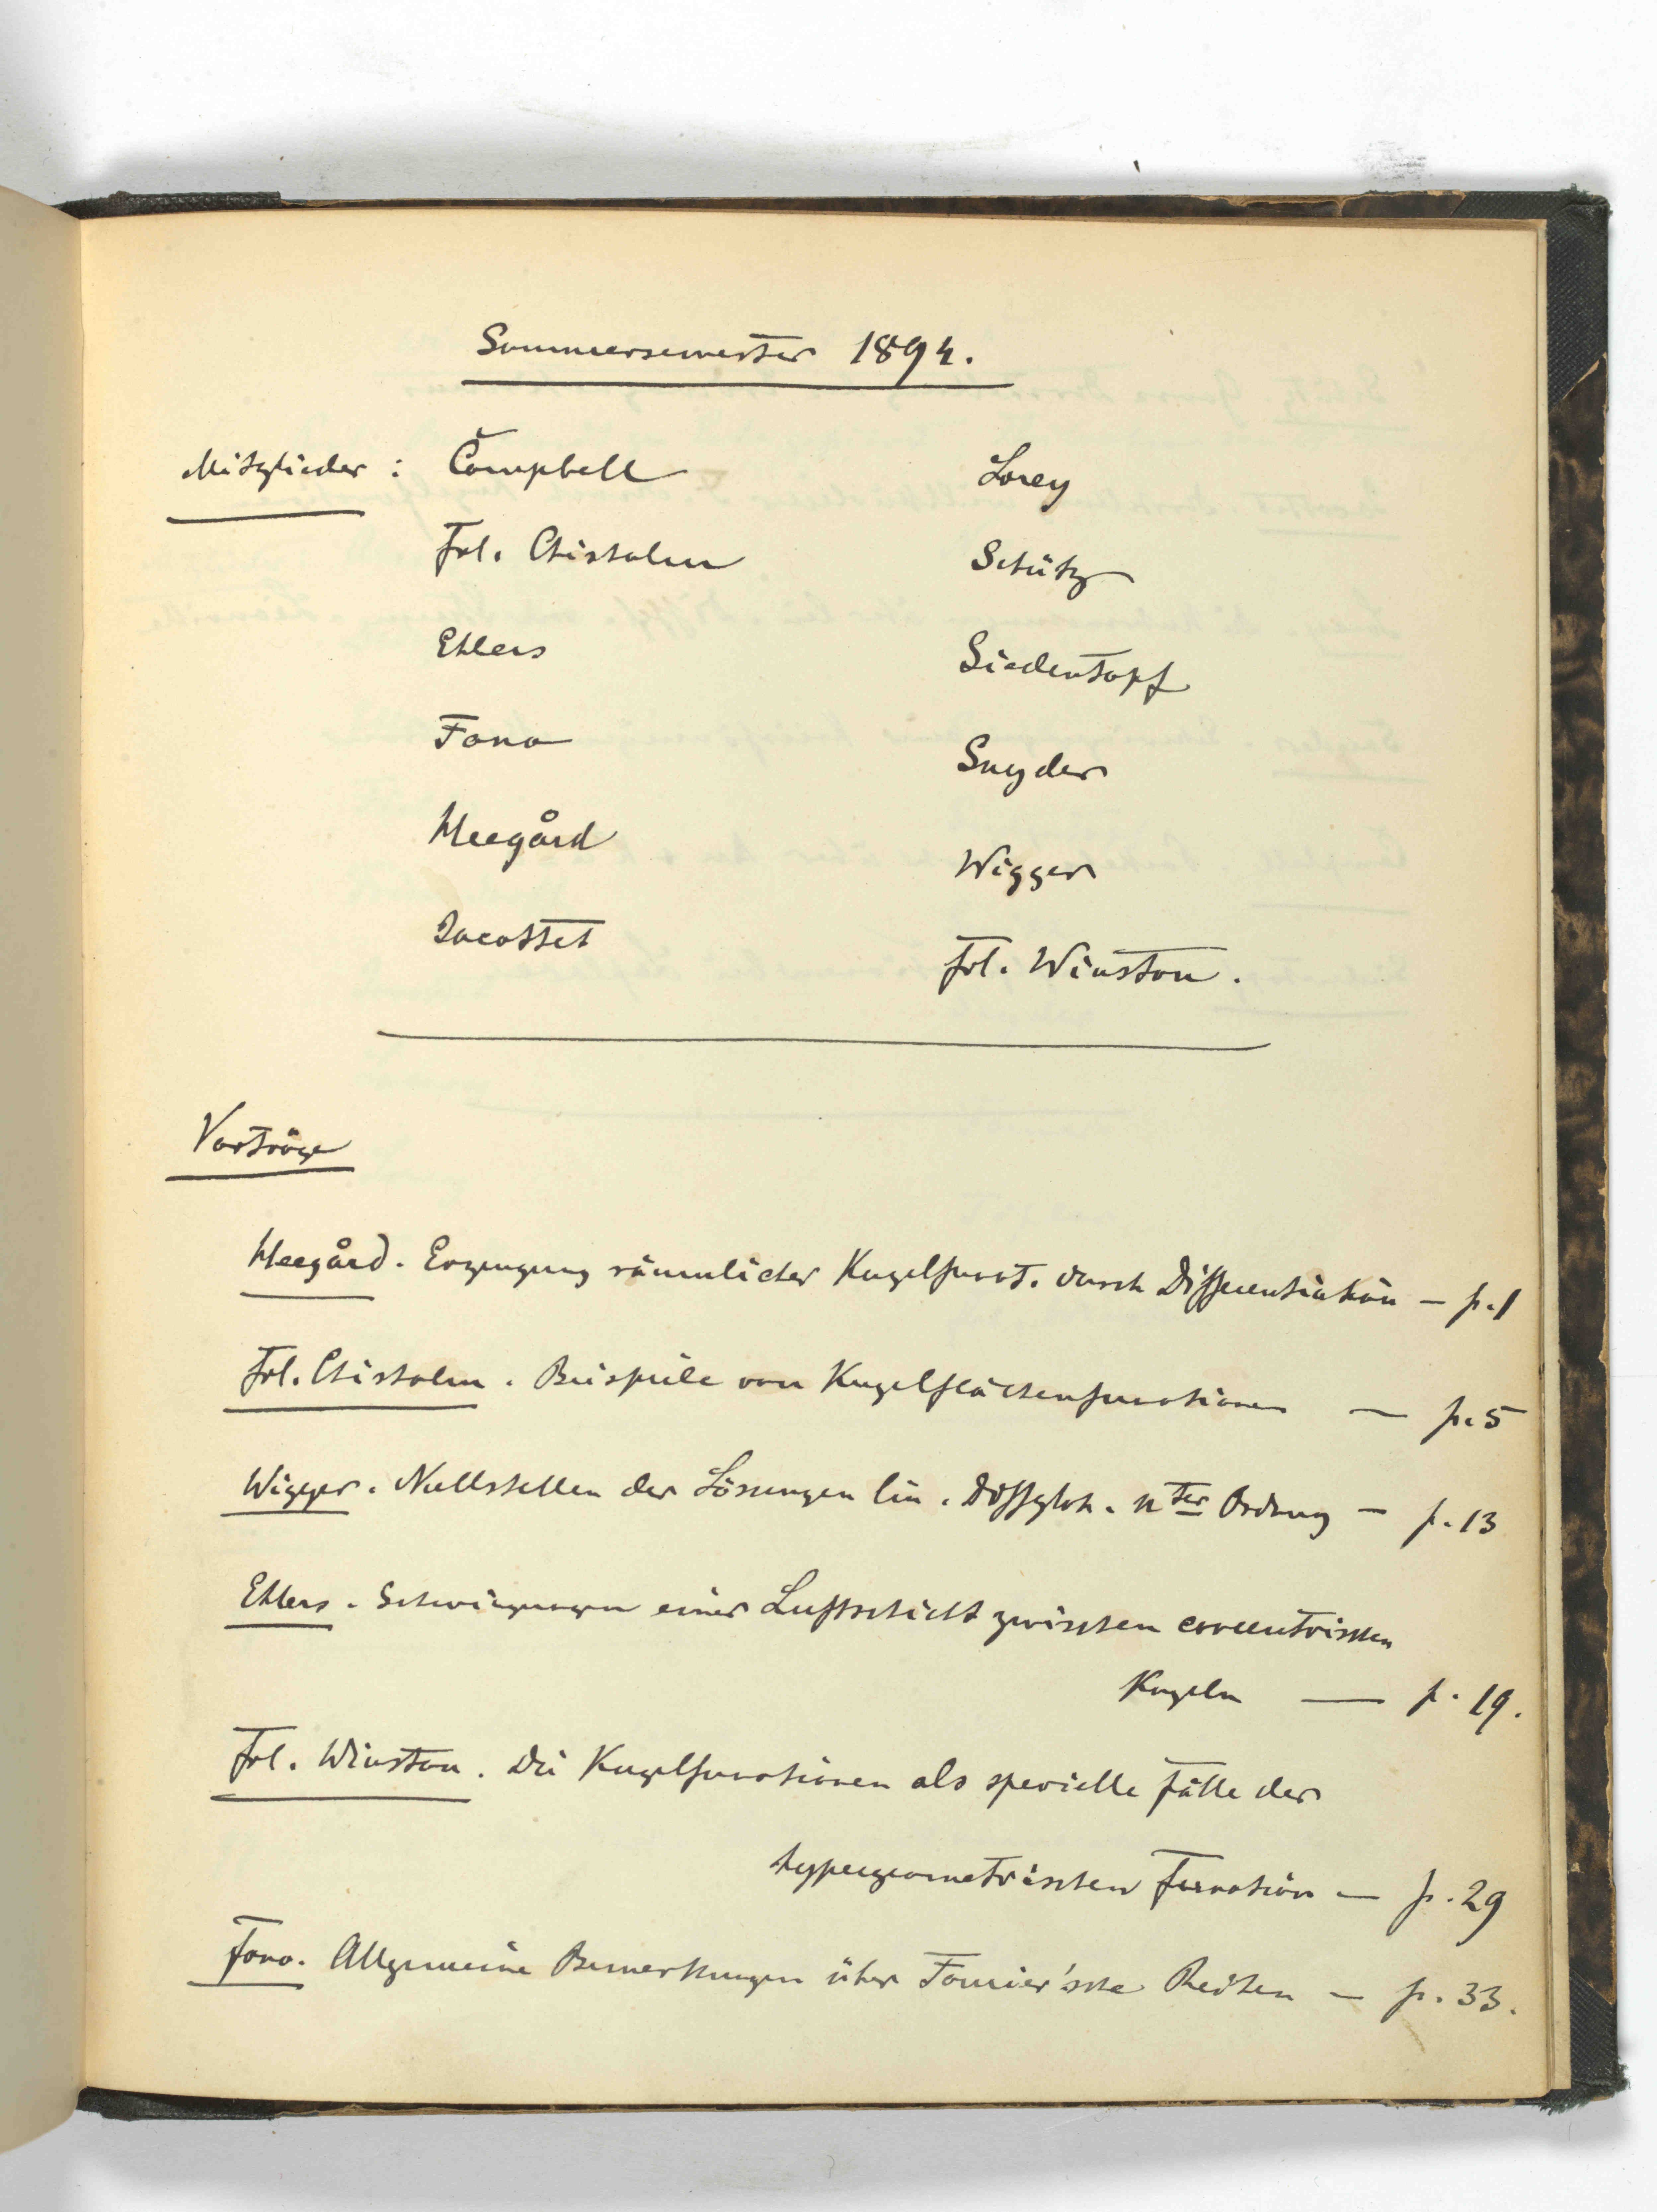 Sommersemester 1894.
Mitglieder: Campbell Lorey
Frl. Chisholm Schütz
Ehlers Siedentopf
Fano Snyder
Heegård Wigger
Jacottet Frl. Winston.
Vorträge
Heegård. Erzeugung räumlicher Kugelfunct. durch Differentiation — p. 1
Frl. Chisholm. Beispiele von Kugelflächenfunctionen — p. 5
Wigger. Nullstellen der Lösungen lin. Diffglch. nter Ordnung — p. 13
Ehlers. Schwingungen einer Luftschicht zwischen concentrischen
Kugeln — p. 19.
Frl. Winston. Die Kugelfunctionen als specielle Fälle der
hypergeometrischen Function — p. 29
Fano. Allgemeine Bemerkungen über Fourier'sche Reihen — p. 33.